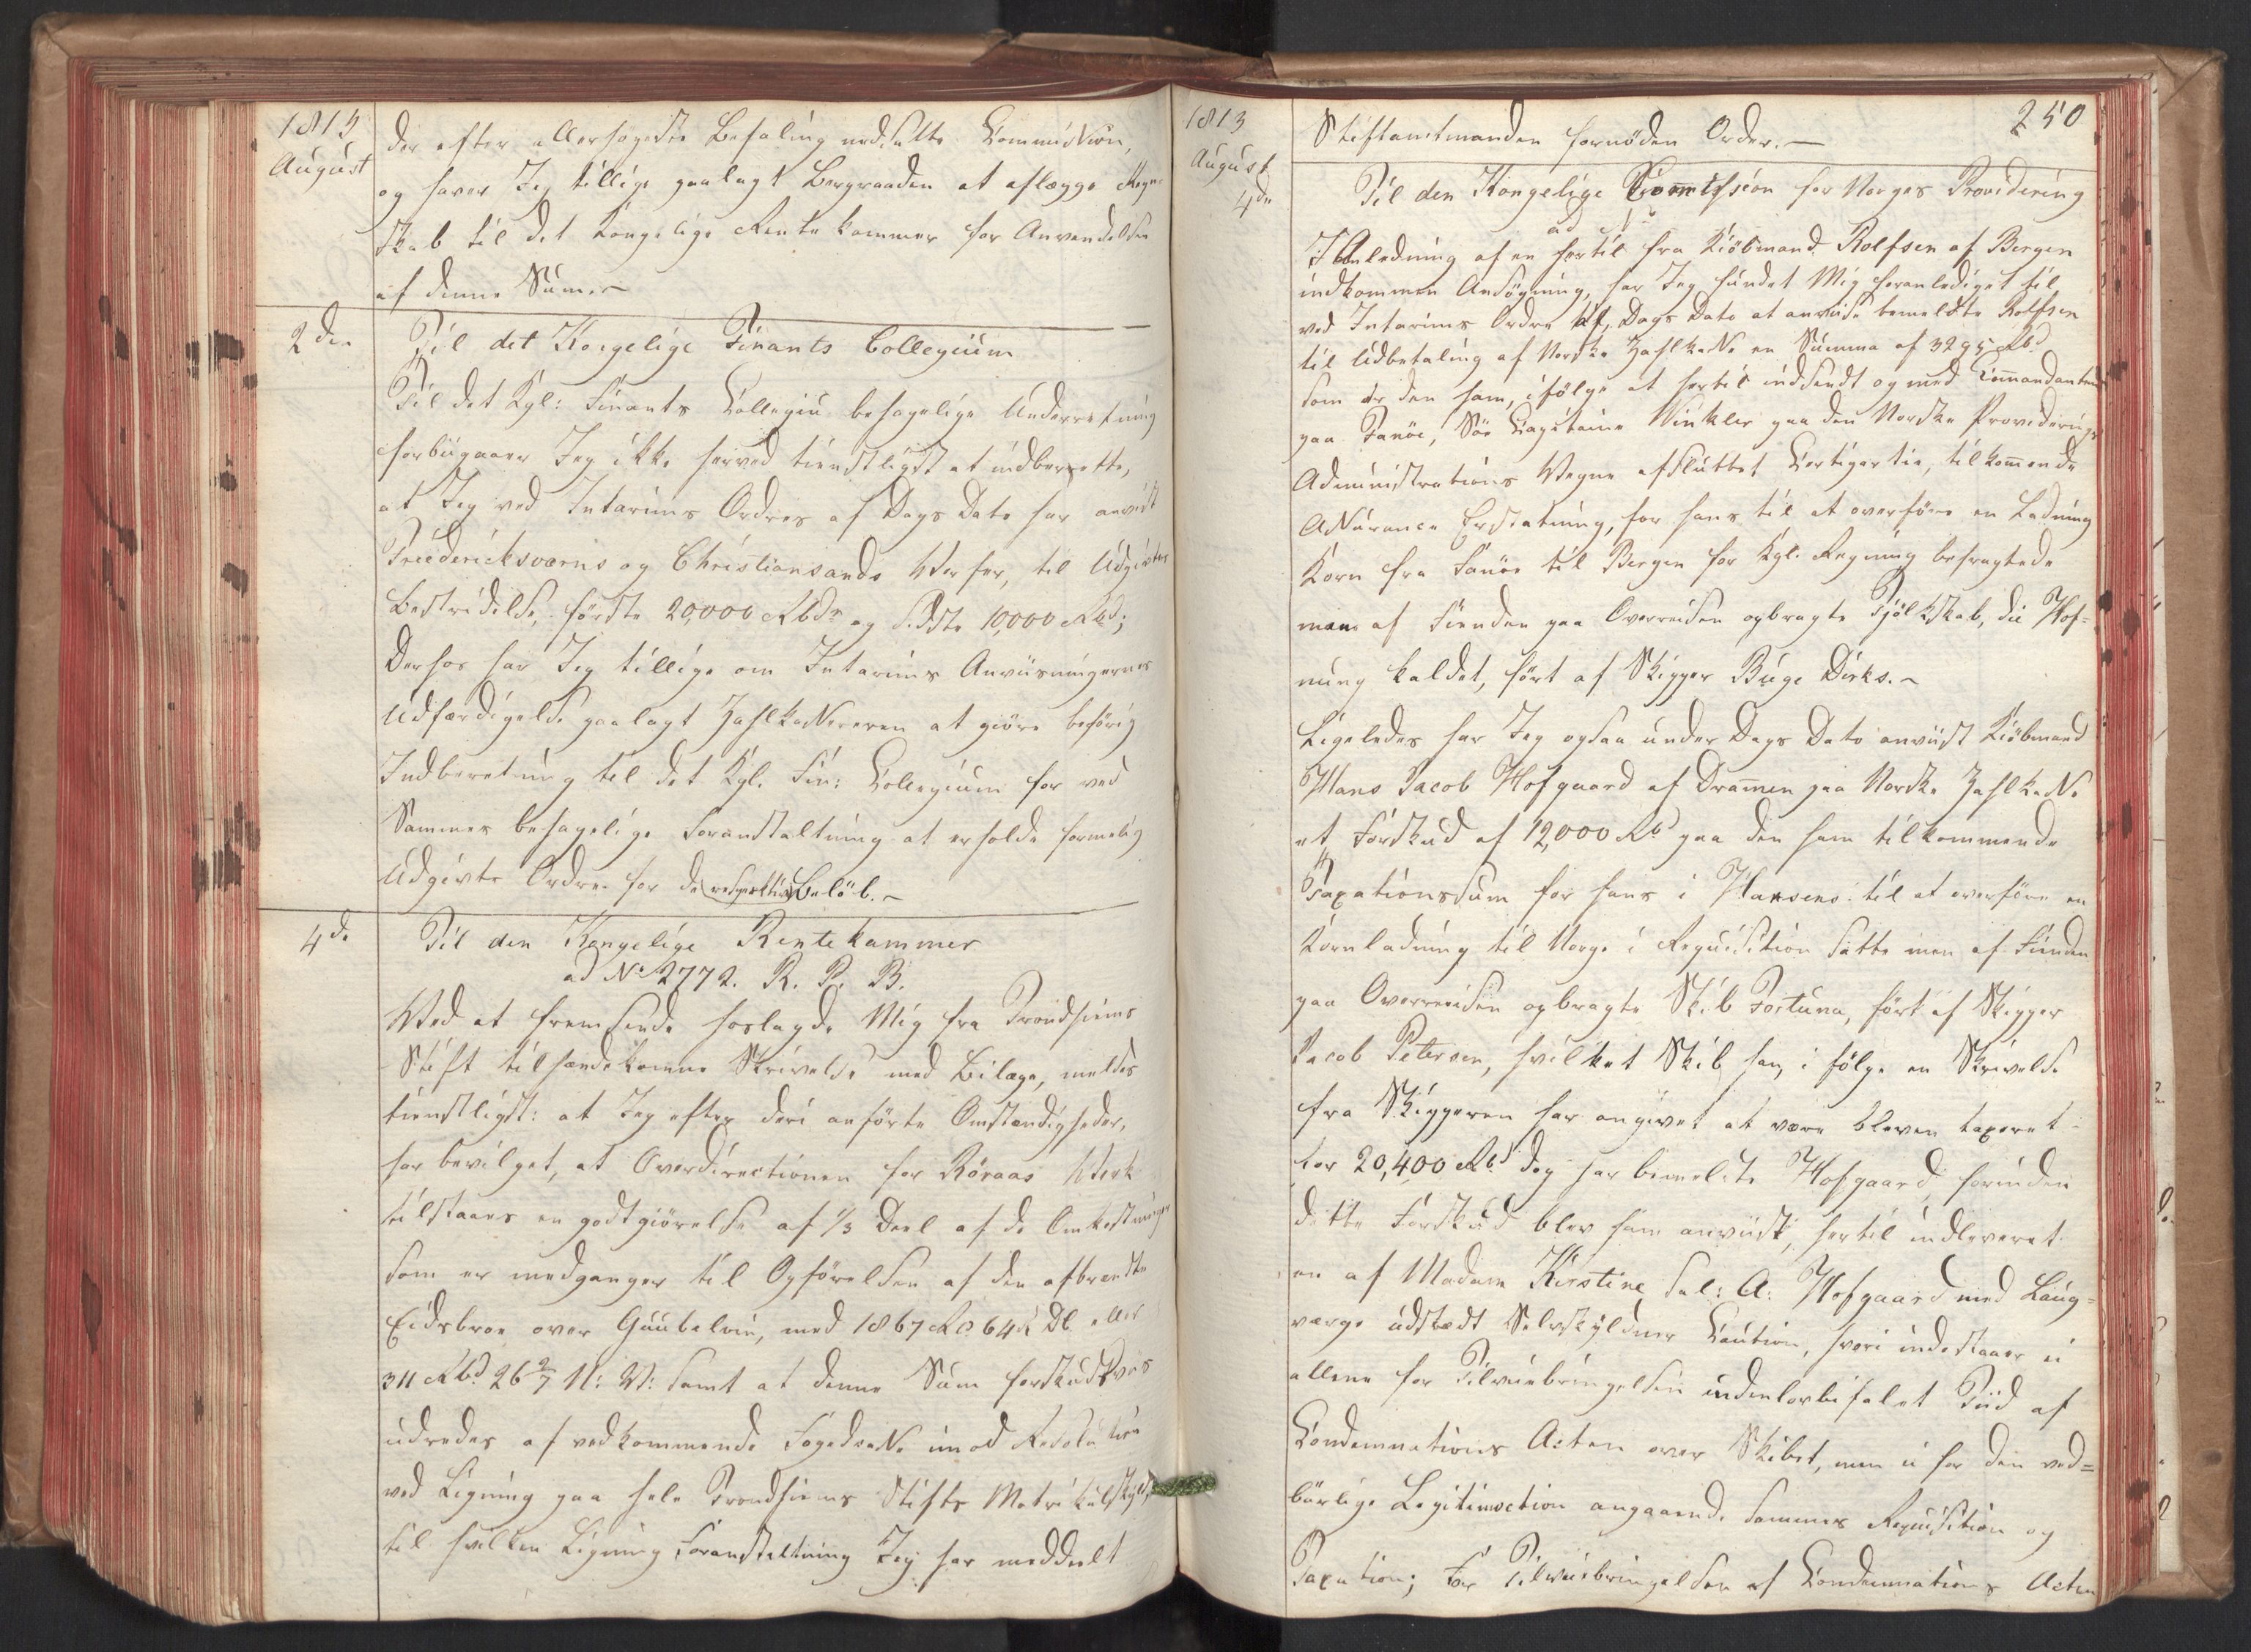 1813
August
der efter allerhøgeste Befaling nedsatte Commission,
og haver Jeg tillige paalagt Bergraaden at aflægge Regn-
skab til det Kongelige Rentekammer for Anvendelsen
af denne Sum. ~
2den
Til det Kongelige Finants Collegium
Til det Kgl: Finants Collegiu behagelige Underretning
forbigaaer Jeg ikke herved tienstligst at indberette,
at Jeg ved Interims Ordres af Dags Dato har anvist
Friederichsværns og Christiansands Verfer, til Udgivters
Bestridelse, første 20,000 Rbdr og sidste 10,000 Rbd;
Derhos har Jeg tillige om Interims Anviisningernes
Udfærdigelse paalagt Zahlkassereren at giøre behørig
Indberetning til det Kgl. Fin: Collegium for ved
Sammes behagelige Foranstaltning at erholde formelig
Udgivts Ordre for de respective Beløb. ~
4de
Til den Kongelige Rentekammer
ad No 2772. R. P. B.
Ved at fremsende hoslagde Mig fra Trondhiems
Stift tilhændekomne Skrivelse med Bilage, meldes
tienstligst: at Jeg efter deri anførte Omstændigheder,
har bevilget, at Overdirectionen for Röraas Værk
tilstaaes en godtgiörelse af 1/3 Deel af de Omkostninger
som er medganger til Opförelsen af den afbrændte
Eidsbroe over Guubelven, med 1867 Rd 64 s DC eller
311 Rbd 26 2/7 N: V: samt at denne Sum forskudsviis
udredes af vedkommende Fogedcasse imod Refusion
ved Ligning paa hele Trondhiems Stifts Matrikulskyld,
til hvilken Ligning Foranstaltning Jeg har meddeelt
250
1813
August
Stiftamtmanden fornöden Ordre. —
4de
Til den Kongelige Commission for Norges Providering
ad
I Anledning af en hertil fra Kiöbmand Rolfsen af Bergen
indkommen Ansögning, har Jeg fundet Mig foranlediget til
ved Interims Ordre af Dags Dato at anvise bemeldte Rolfsen
til Udbetaling af Norske Zahlkasse en Summa af 3295 Rbd
som er den ham, ifölge et hertil indsendt og med Commandanten
paa Fanöe, Söe Capitaine Winkler paa den Norske Providerings
Administrations Vegne afsluttet Certepartie, tilkommende
Assurance Erstatning, for hans til at overföre en Ladning
Korn fra Fanöe til Bergen for Kgl. Regning befragtede
men af Fienden paa Overreisen opbragte Tjölkskab, die Hof-
nung kaldet, fört af Skipper Büge Dirks. ~
Ligeledes har Jeg ogsaa under Dags Dato anviist Kiöbmand
Hans Jacob Hofgaard af Drammen paa Norske Zahlkasse
et Forskud af 12,000 Rbd paa den ham tilkommende
Taxationssum for hans i Hansens: til at overföre en
Kornladning til Norge i Requisition satte men af Fienden
paa Overreisen opbragte Skib Fortuna, fört af Skipper
Jacob Petersen, hvilket Skib han, i fölge en Skrivelse
fra Skipperen har angivet at være bleven taxeret
for 20,400 Rbd dog har bemeldte Hofgaard, forinden
dette Forskud blev ham anviist, hertil indleveret
en af Madam Kirstine Sal: A: Hofgaard med Laug-
værge udstædt Selvskyldner Caution, hvori indestaaer ei
allene for Tilveiebringelsen inden lovbefalet Tiid af
Condemnations Acten over Skibet, men ei for den ved=
börlige Legitimation angaaende sammes Requisition og
Taxation; For Tilveiebringelsen af Condemnations Acten